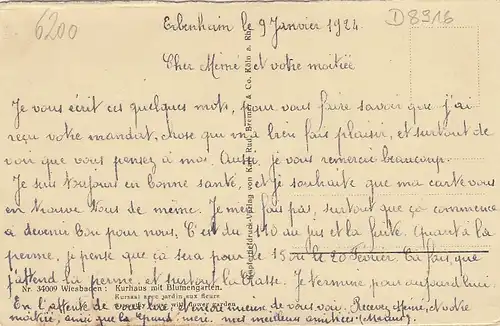 6200
D8916
Erbenheim le 9 Janvier 1924
Cher Mémé et votre moitiée
Je vous écrit ces quelques mots, pour vous faire savoir que j'ai
reçu votre mandat, chose qui m'a bien fais plaisir, et surtout de
voir que vous pensez à moi. Aussi, je vous remercie beaucoup.
Je suis toujours en bonne santé, et je souhaite que ma carte vous
en trouve tous de même. Je m'en fais pas, surtout que ça commence
a devenir bon pour nous, C'est du 110 au jus et la fuite. Quant à la
perme, je pense que ça sera pour le 15 ou le 20 Février. Ça fais que
j'attend la perme, et surtout la classe. Je termine pour aujourd'hui.
Nr. 34069 Wiesbaden: Kurhaus mit Blumengarten.
Kursaal avec jardin aux fleurs
with flower garden
En l'attente de vous lire et encore mieux, de vous voir. Recevez Mémé, et votre
moitiée, ainsi que la grand-mère, mes meilleurs amitiées
Kupfertiefdruck-Verlag von Knackstedt Rud. Bremer & Co. Köln a. Rh.